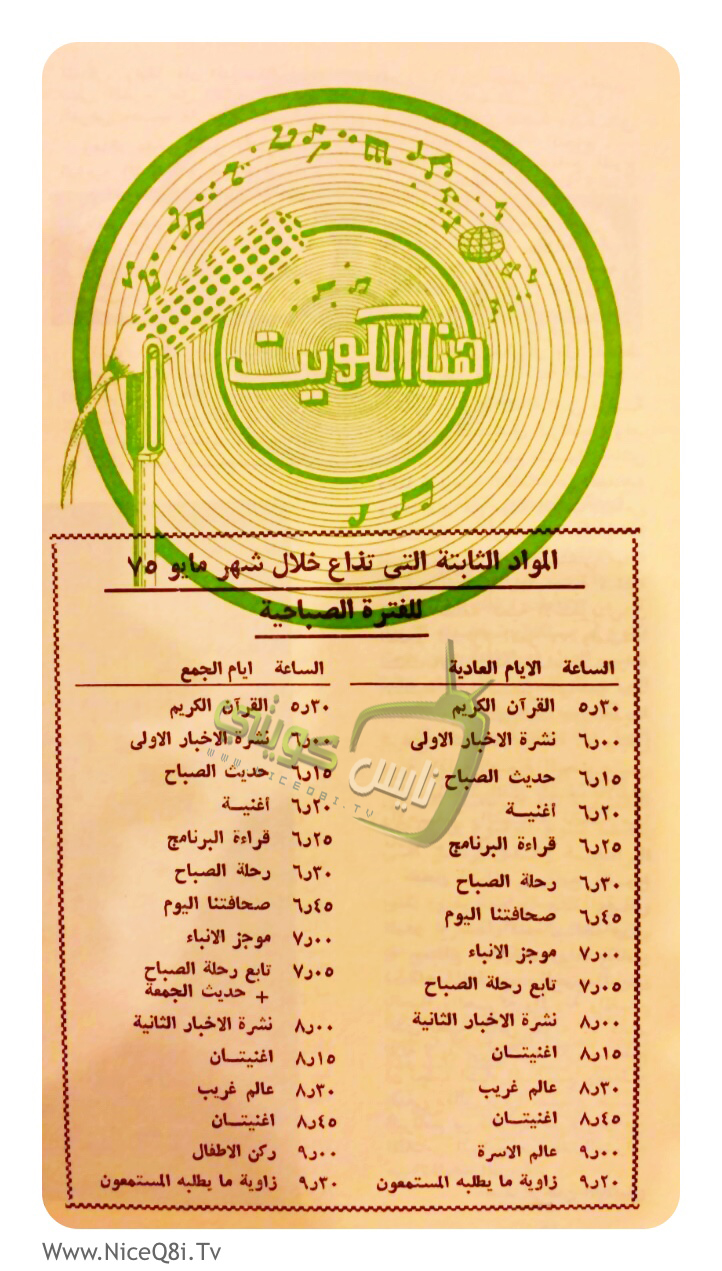 هنا الكويت
المواد الثابتة التى تذاع خلال شهر مايو ٧٥
للفترة الصباحية
الساعة الايام العادية
٥٫٣٠ القرآن الكريم
٦٫٠٠ نشرة الاخبار الاولى
٦٫١٥ حديث الصباح
٦٫٢٠ أغنيــة
٦٫٢٥ قراءة البرنامج
٦٫٣٠ رحلة الصباح
٦٫٤٥ صحافتنا اليوم
٧٫٠٠ موجز الانباء
٧٫٠٥ تابع رحلة الصباح
٨٫٠٠ نشرة الاخبار الثانية
٨٫١٥ اغنيتــان
٨٫٣٠ عالم غريب
٨٫٤٥ اغنيتــان
٩٫٠٠ عالم الاسرة
٩٫٢٠ زاوية ما يطلبه المستمعون
الساعة ايام الجمع
٥٫٣٠ القرآن الكريم
٦٫٠٠ نشرة الاخبار الاولى
٦٫١٥ حديث الصباح
٦٫٢٠ أغنيــة
٦٫٢٥ قراءة البرنامج
٦٫٣٠ رحلة الصباح
٦٫٤٥ صحافتنا اليوم
٧٫٠٠ موجز الانباء
٧٫٠٥ تابع رحلة الصباح
+ حديث الجمعة
٨٫٠٠ نشرة الاخبار الثانية
٨٫١٥ اغنيتــان
٨٫٣٠ عالم غريب
٨٫٤٥ اغنيتــان
٩٫٠٠ ركن الاطفال
٩٫٣٠ زاوية ما يطلبه المستمعون
نايس كويتي
WWW.NICEQ8I.TV
Www.NiceQ8i.Tv